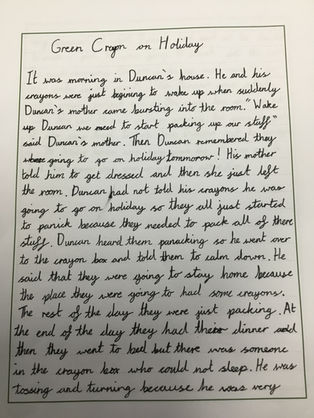 Green Crayon on Holiday
It was morning in Duncan's house. He and his
crayons were just begining to wake up when suddenly
Duncan's mother came bursting into the room. "Wake
up Duncan we need to start packing up our stuff"
said Duncan's mother. Then Duncan remembered they
were going to go on holiday tommorow! His mother
told him to get dressed and then she just left
the room. Duncan had not told his crayons he was
going to go on holiday so they all just started
to panick because they needed to pack all of there
stuff. Duncan heard them panacking so he went over
to the crayon box and told them to calm down. He
said that they were going to stay home because
the place they were going to had some crayons.
The rest of the day they were just packing. At
the end of the day they had their dinner and
then they went to bed but there was someone
in the crayon box who could not sleep. He was
tossing and turning because he was very